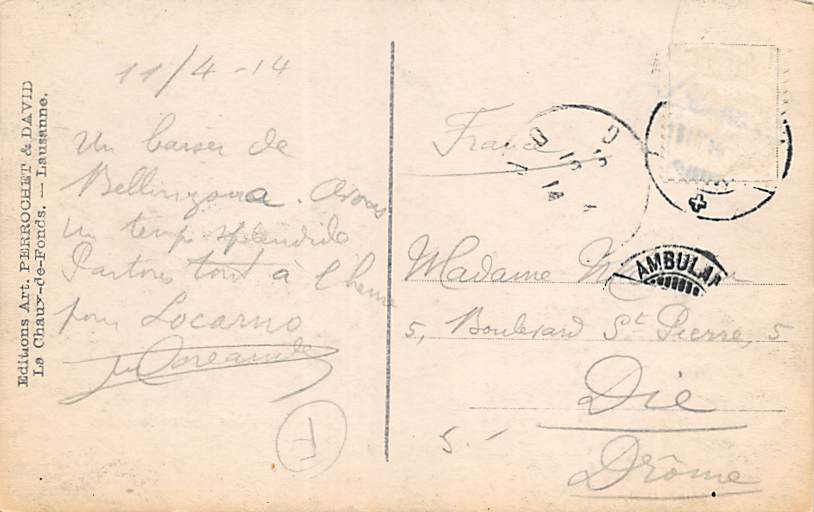 Editions Art. PERROCHET & DAVID
La Chaux-de-Fonds. — Lausanne.
11/4-14
Un baiser de
Bellinzona. Avons
un temps splendide
Partons tout à l'heure
pour Locarno
F
France
14
AMBULAN
Madame
5, Boulevard St Pierre, 5
Die
Drôme
5.-